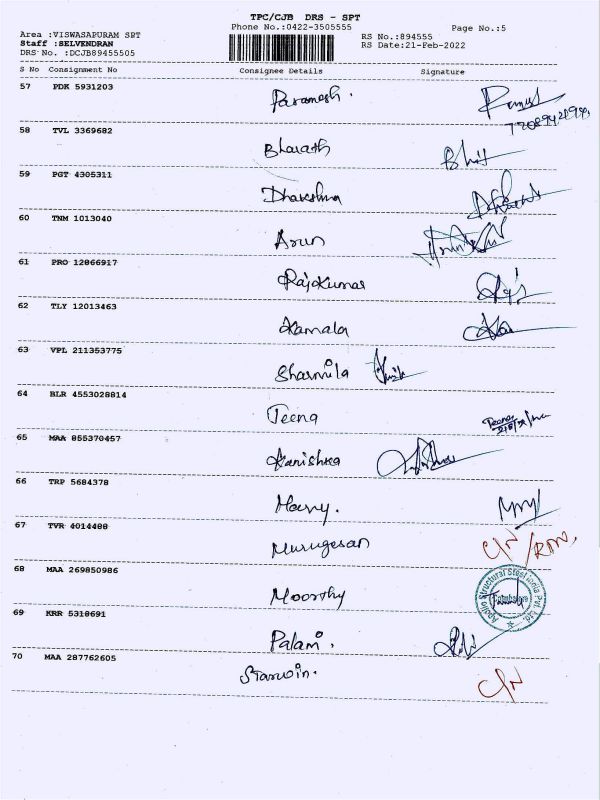 TPC/CJB DRS - SPT
Phone No.:0422-3505555 Page No.:5
Area :VISWASAPURAM SPT RS No.:894555
Staff :SELVENDRAN RS Date:21-Feb-2022
DRS No. :DCJB89455505
S No Consignment No Consignee Details Signature
57 PDK 5931203 Paramesh.
58 TVL 3369682 Bharath
59 PGT 4305311 Dhakshna
60 TNM 1013040 Arun
61 PRO 12866917 Rajkumar
62 TLY 12013463 Kamala
63 VPL 211353775 Sharmila
64 BLR 4553028814 Teena Teena
65 MAA 855370457 Kanishka
66 TRP 5684378 Harry.
67 TVR 4014488 Murugesan C/N /RTN,
68 MAA 269850986 Moorthy Apollo Structural Steel India Pvt. Ltd.
69 KRR 5318691 Palani.
70 MAA 287762605 Starwin. C/N